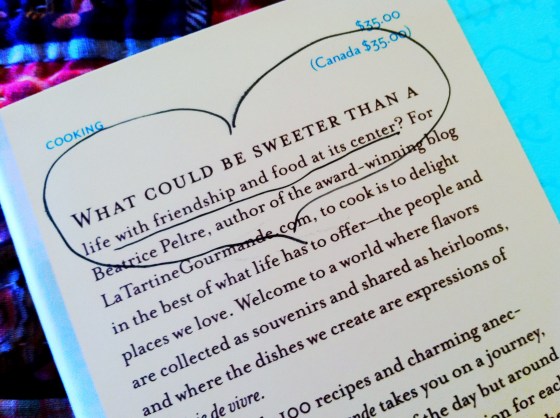 $35.00
(Canada $35.00)
COOKING
WHAT COULD BE SWEETER THAN A
life with friendship and food at its center? For
Béatrice Peltre, author of the award-winning blog
LaTartineGourmande.com, to cook is to delight
in the best of what life has to offer—the people and
places we love. Welcome to a world where flavors
are collected as souvenirs and shared as heirlooms,
and where the dishes we create are expressions of
de vivre.
100 recipes and charming anec-
takes you on a journey,
of the day but around
on for each